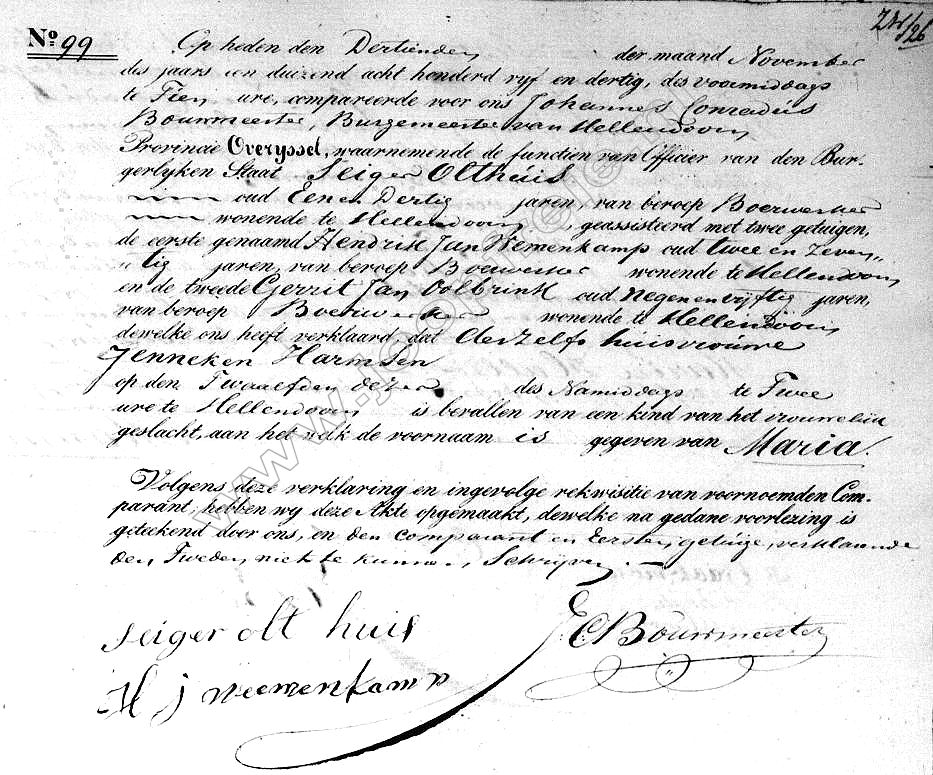 No 99
Op heden den Dertienden der maand November
des jaars een duizend acht honderd vyf en dertig, des voormiddags
te Tien ure, compareerde voor ons Johannes Conradus
Bouwmeester, Burgemeester van Hellendoorn
Provincie Overyssel, waarnemende de functien van Officier van den Bur-
gerlyken Staat Seiger Olthuis
oud Een en Dertig jaren, van beroep Boerwerker
wonende te Hellendoorn, geassisteerd met twee getuigen,
de eerste genaamd Hendrik Jan Nemenkamp oud twee en Zeven„
„tig jaren, van beroep Boerwerker wonende te Hellendoorn
en de tweede Gerrit Jan Oolbrink oud Negen en vijftig jaren,
van beroep Boerwerker wonende te Hellendoorn
dewelke ons heeft verklaard, dat Deszelfs huisvrouwe
Jenneken Harmsen
op den Twaalfden dezer des Namiddags te Twee
ure te Hellendoorn is bevallen van een kind van het vrouwelijk
geslacht, aan het welk de voornaam is gegeven van Maria.
Volgens deze verklaring en ingevolge rekwisitie van voornoemden Com-
parant, hebben wy deze Akte opgemaakt, dewelke na gedane voorlezing is
geteekend door ons, en den comparant en Eersten getuige, verklaarende
den Tweden niet te kunnen Schrijven
seiger olt huis
JC Bouwmeester
H j neemenkamp
www.